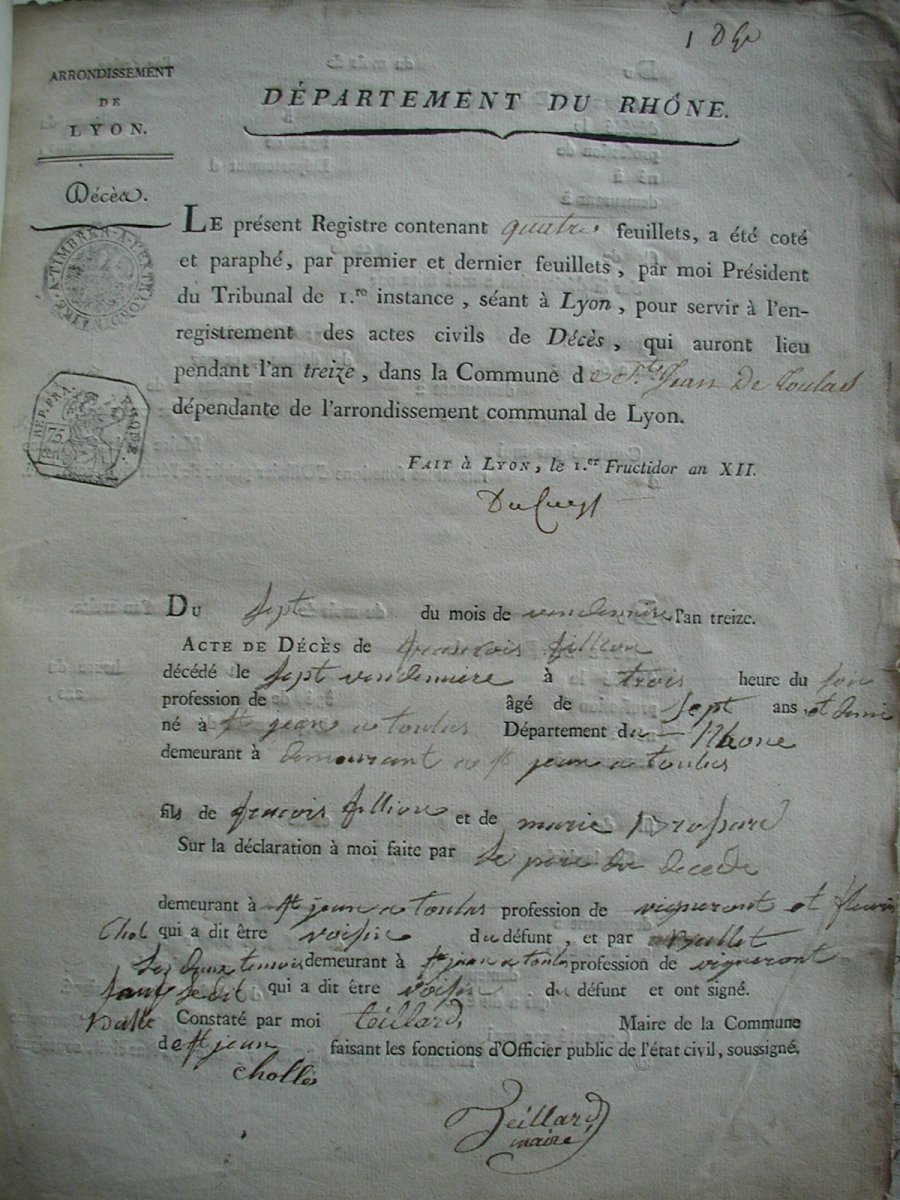 ARRONDISSEMENT
DE
LYON.
Décès.
DÉPARTEMENT DU RHÔNE.
LE présent Registre contenant quatre feuillets, a été coté
et paraphé, par premier et dernier feuillets, par moi Président
du Tribunal de 1.re instance, séant à Lyon, pour servir à l'en-
registrement des actes civils de Décès, qui auront lieu
pendant l'an treize, dans la Commune de St. Jean De Toulas
dépendante de l'arrondissement communal de Lyon.
FAIT à LYON, le 1.er Fructidor an XII.
DU sept du mois de vendemiere l'an treize.
ACTE DE DÉCÈS de francois fillion
décédé le sept vendemiere à trois heure du
profession de âgé de sept ans et demi
né à st jean a toulas Département du Rhone
demeurant à demourant a st jean a toulas
fils de francois fillion et de marie
Sur la déclaration à moi faite par le pere du decede
demeurant à st jean a toulas profession de vigneront et
Chol qui a dit être voisin du défunt, et par
demeurant à st jean a toulas profession de vigneront
qui a dit être voisin du défunt et ont signé.
Constaté par moi teillard Maire de la Commune
de st jean faisant les fonctions d'Officier public de l'état civil, soussigné.
Teillard
maire